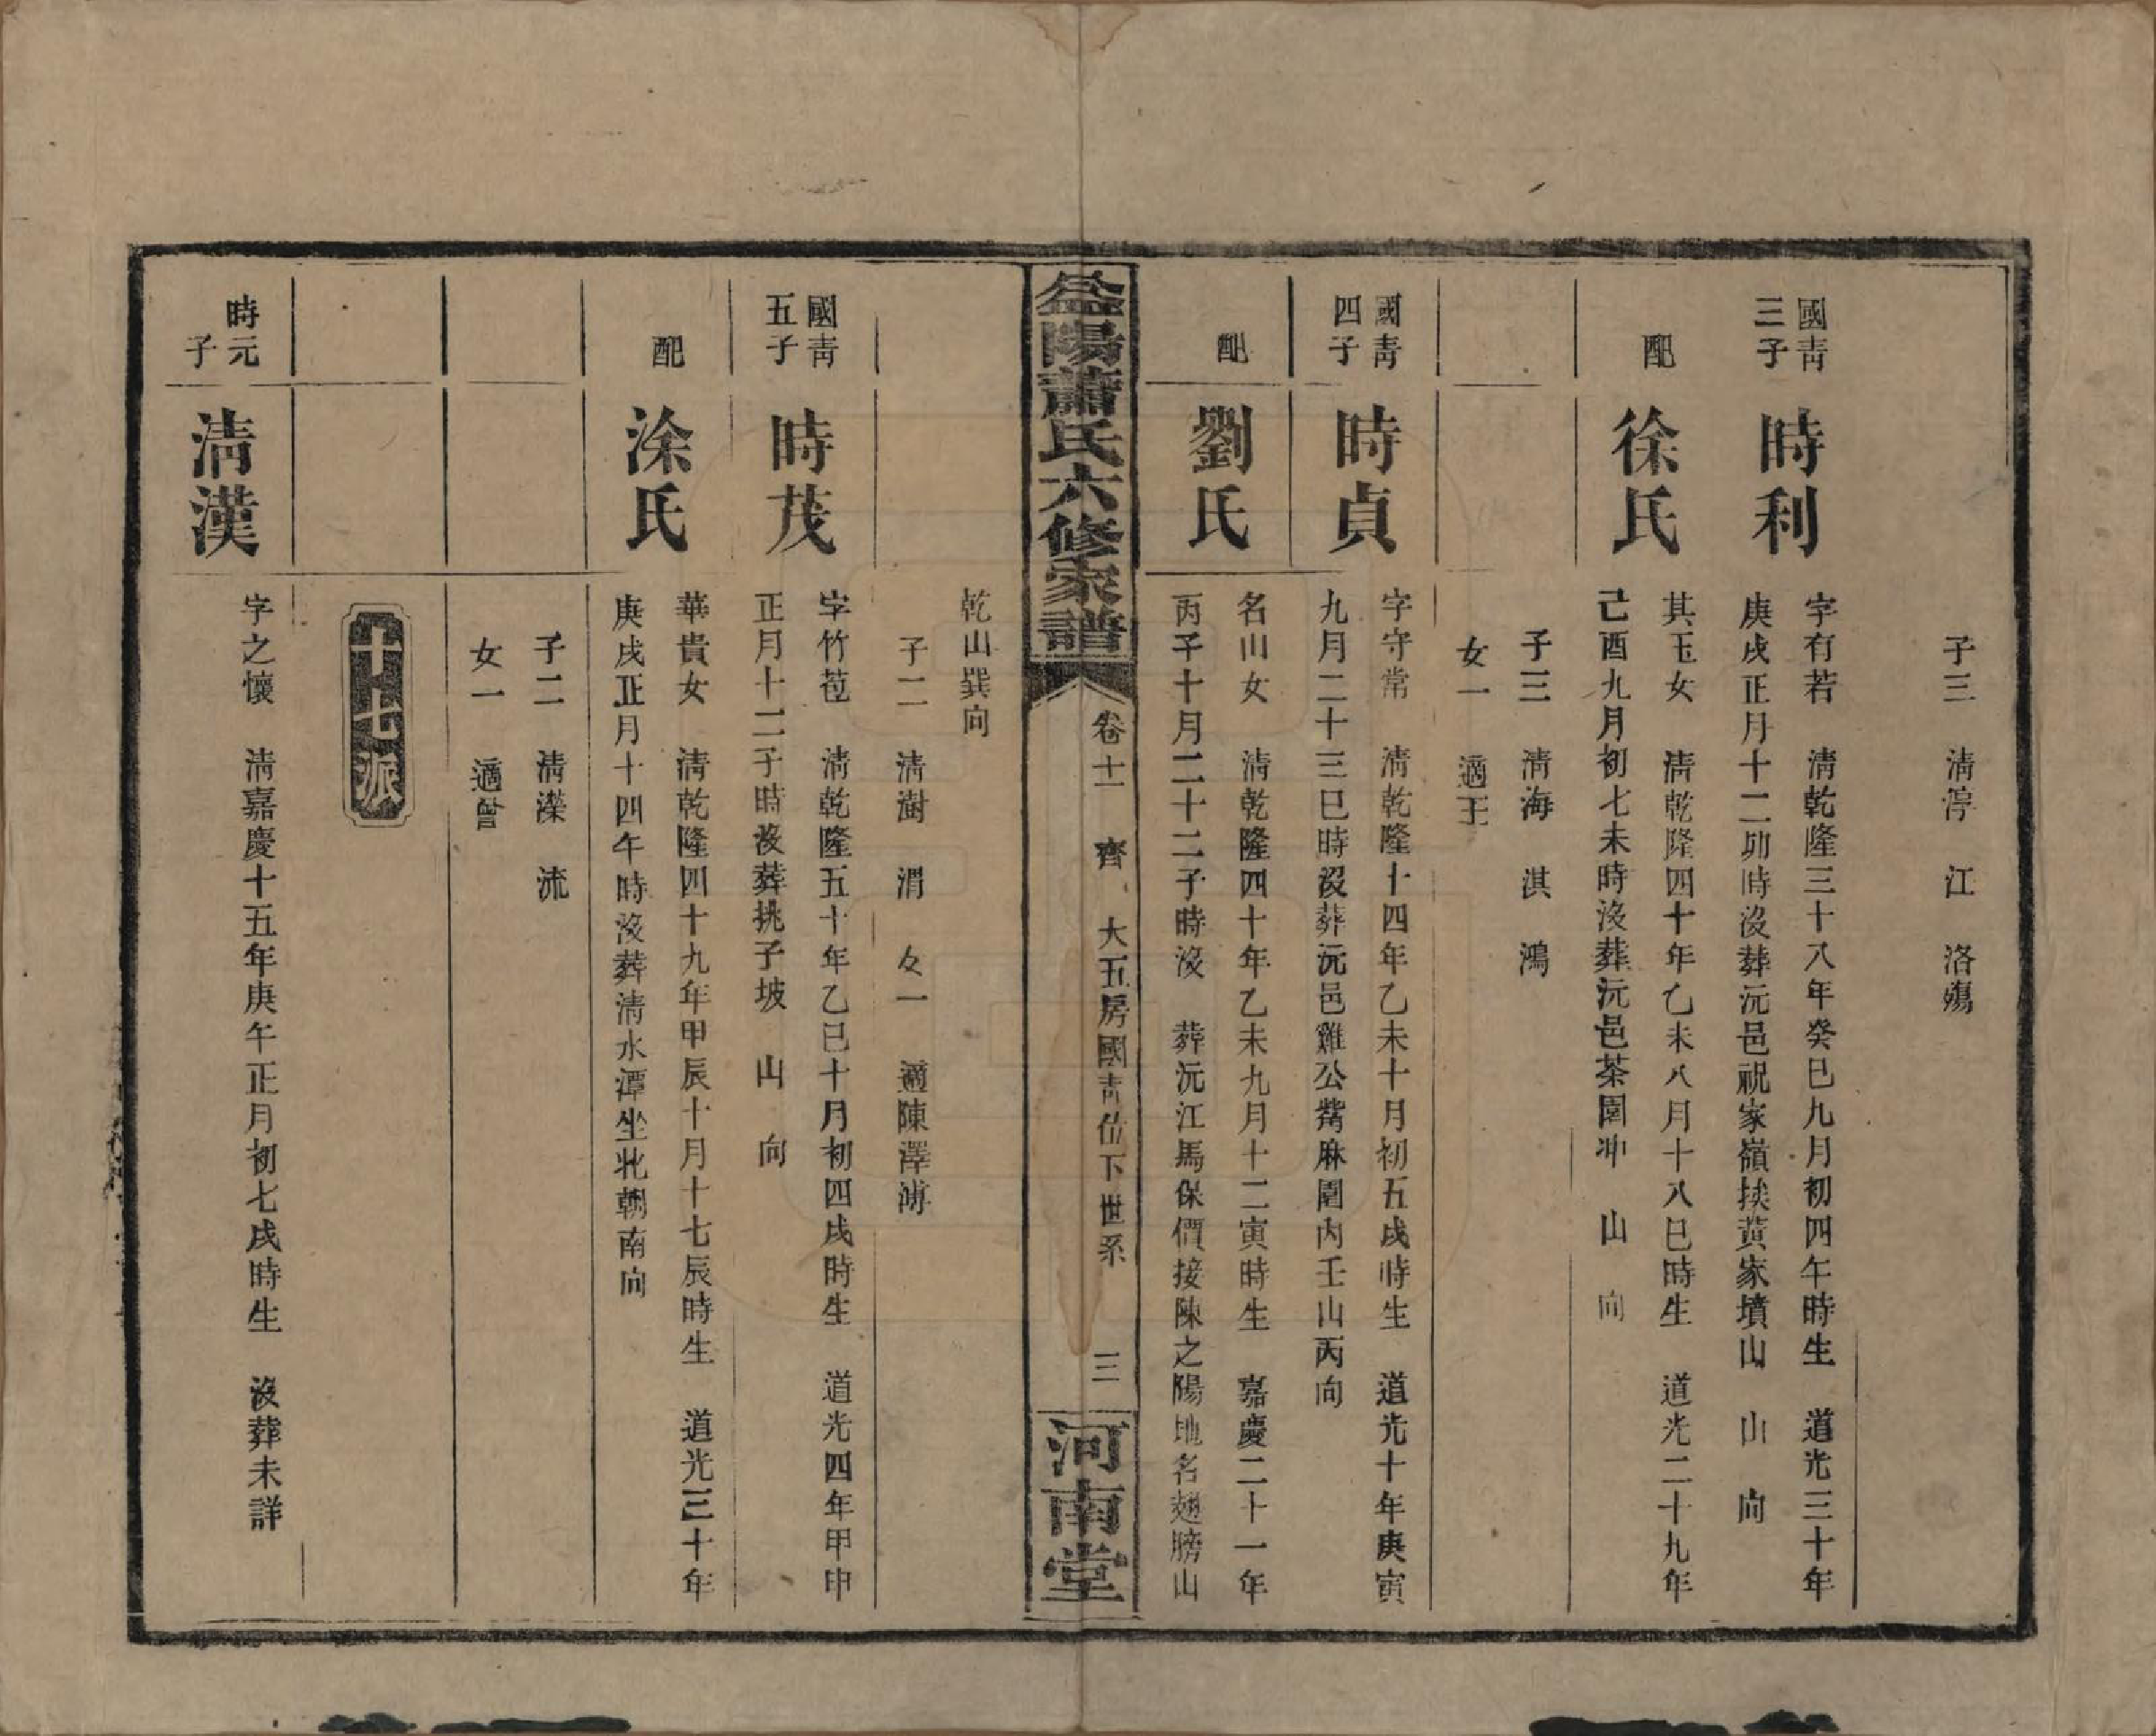 子三 淸渟 江 洛殤
國靑三子
時利
字有若 淸乾隆三十八年癸巳九月初四午時生 道光三十年
庚戌正月十二卯時沒葬沅邑祝家嶺挨黃家墳山 山 向
配
徐氏
其玉女 淸乾隆四十年乙未八月十八巳時生 道光二十九年
己酉九月初七未時沒葬沅邑茶園冲 山 向
子三 淸海 淇 鴻
女一 適王
國靑四子
時貞
字守常 淸乾隆十四年乙未十月初五戌時生 道光十年庚寅
九月二十三巳時沒葬沅邑雞公嘴麻園內壬山丙向
配
劉氏
名山女 淸乾隆四十年乙未九月十二寅時生 嘉慶二十一年
丙子十月二十二子時沒 葬沅江馬保價接陳之陽地名翅膀山
益陽蕭氏六修家譜
卷十一 齊 大五房國靑位下世系 三
河南堂
乾山巽向
子二 淸澍 渭 女一 適陳澤溥
國靑五子
時茂
字竹苞 淸乾隆五十年乙巳十月初四戌時生 道光四年甲申
正月十二子時沒葬挑子坡 山 向
配
涂氏
華貴女 淸乾隆四十九年甲辰十月十七辰時生 道光三十年
庚戌正月十四午時沒葬淸水潭坐北朝南向
子二 淸濚 流
女一 適曾
十七派
時元子
淸漢
字之懷 淸嘉慶十五年庚午正月初七戌時生 沒葬未詳